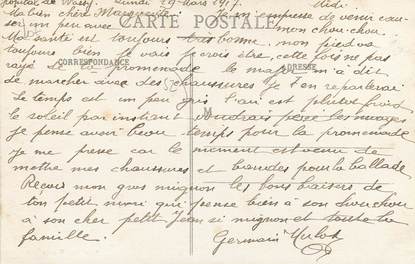 Hopital de Wassy. Lundi 29 Mars 1917. Midi
Ma bien chère Marguerite, m'empresse de venir cau-
CARTE POSTALE
ser un peu avec mon chouchou.
Ma santé est toujours très bonne, mon pied va
toujours bien je vais je crois être, cette fois ne pas
CORRESPONDANCE
ADRESSE
rayé de promenade le major m'a dit
de marcher avec des chaussures je t'en reparlerai
Le temps est un peu gris l'air est plutôt frais
le soleil par instant voudrais percé les nuages
je pense avoir beau temps pour la promenade
je me presse car le moment est venu de
mettre mes chaussures et bandes pour la ballade
Recois mon gros mignon les bons baisers de
ton petit moni qui pense bien à son chouchou
à son cher petit Jean si mignon et toute la
famille. Germain Hulot